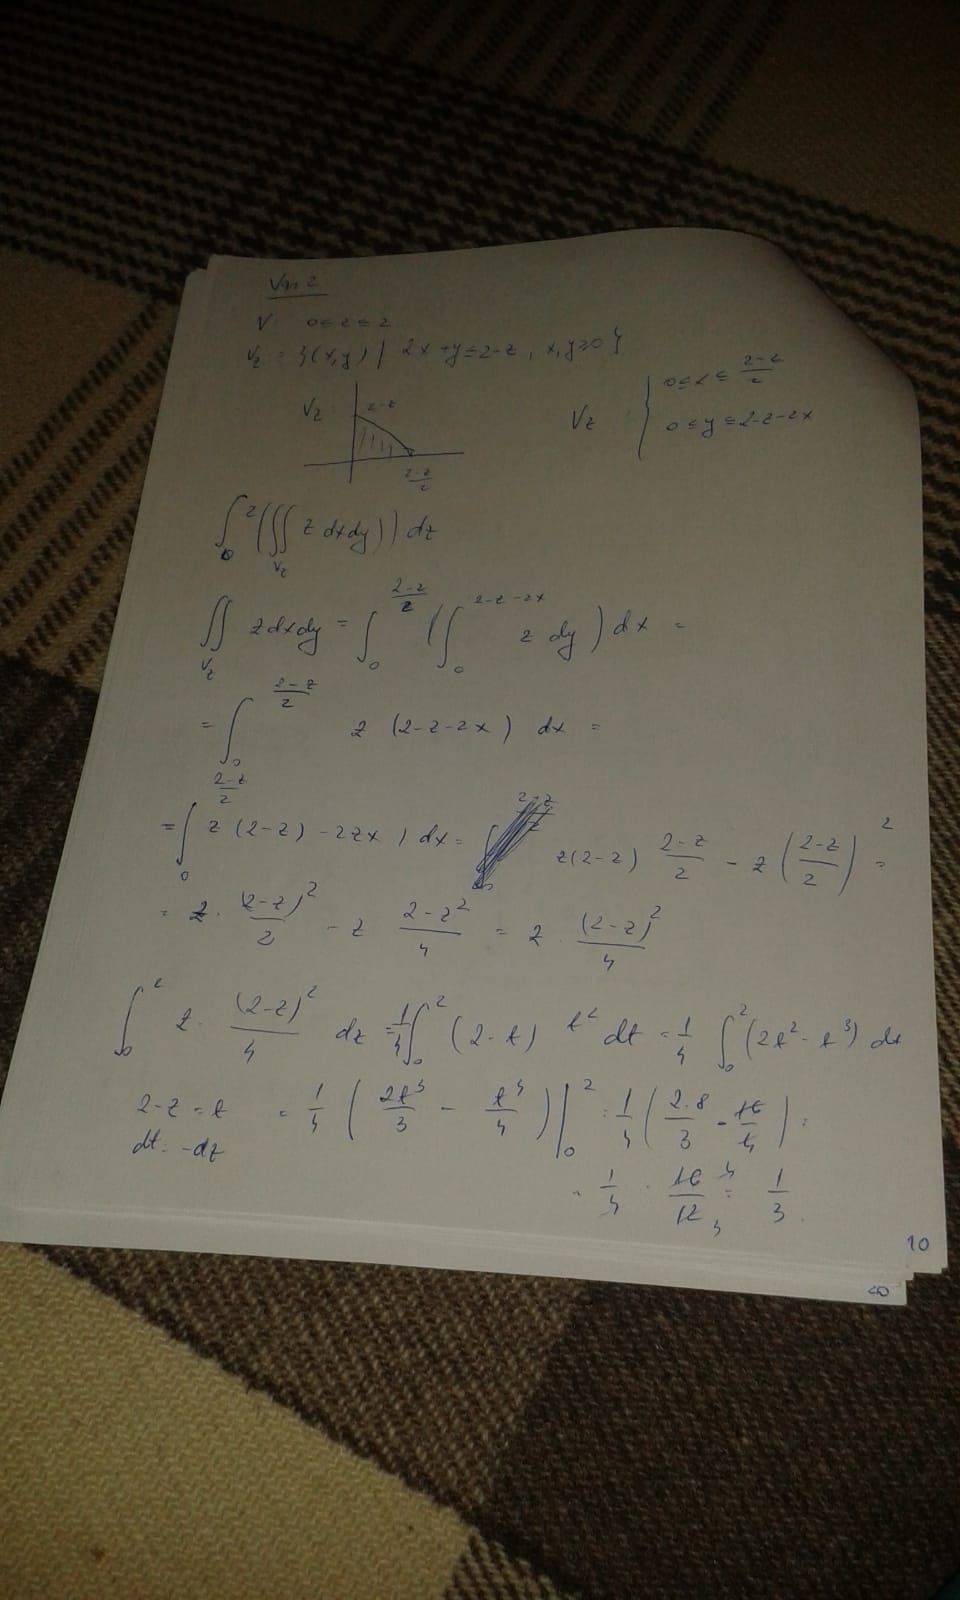 V 0 ≤ z ≤ 2
V_z = {(x,y) | 2x+y ≤ 2-z, x,y ≥ 0}
V_z 2-z \frac{2-z}{2}
V_z { 0 ≤ x ≤ \frac{2-z}{2}
0 ≤ y ≤ 2-z-2x
∫_0^2 (∬_{V_z} z dxdy)) dz
∬_{V_z} z dxdy = ∫_0^{\frac{2-z}{2}} (∫_0^{2-z-2x} z dy) dx =
= ∫_0^{\frac{2-z}{2}} z (2-z-2x) dx =
= ∫_0^{\frac{2-z}{2}} z (2-z) - 2zx) dx = z(2-z) \frac{2-z}{2} - z (\frac{2-z}{2})^2 =
= z · \frac{(2-z)^2}{2} - z \frac{2-z^2}{4} = z · \frac{(2-z)^2}{4}
∫_0^2 z · \frac{(2-z)^2}{4} dz = \frac{1}{4} ∫_0^2 (2-t) t^2 dt = \frac{1}{4} ∫_0^2 (2t^2 - t^3) dt
2-z = t = \frac{1}{4} (\frac{2t^3}{3} - \frac{t^4}{4}) |_0^2 = \frac{1}{4} (\frac{2·8}{3} - \frac{16}{4}) =
dt = -dz
= \frac{1}{4} · \frac{16}{12} = \frac{1}{3}.
10